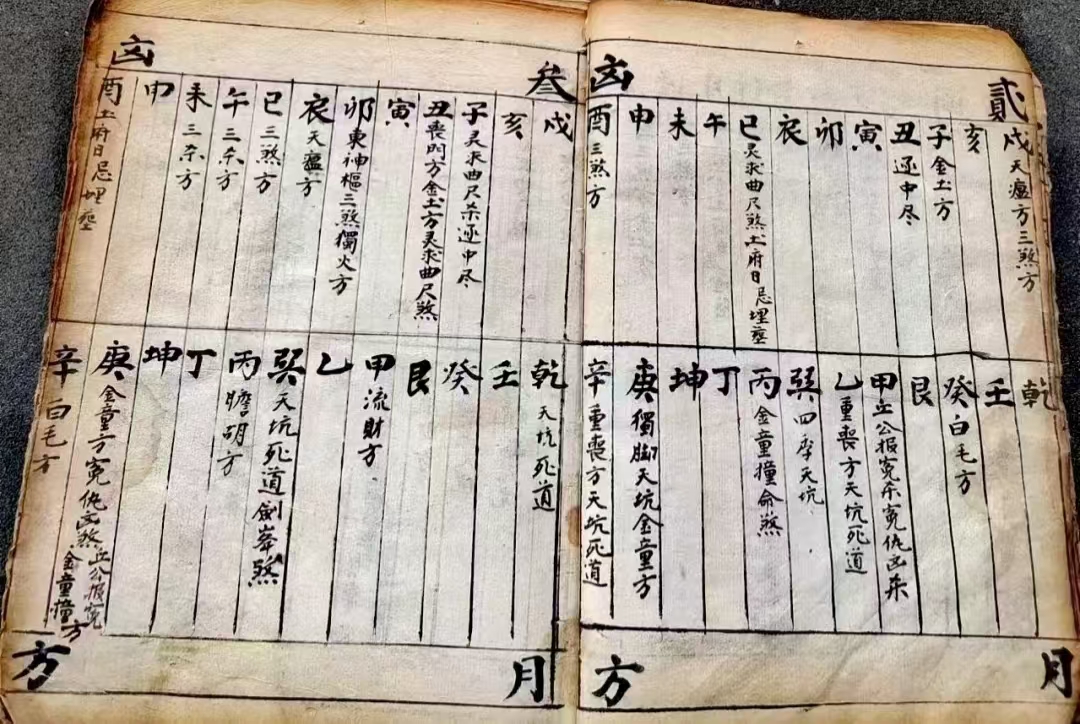 貳
凶
戌 天瘟方三煞方
亥
子 金土方
丑 逐中尽
寅
卯
辰
巳 灵求曲尺煞土府日忌埋塟
午
未
申
酉 三煞方
乾
壬
癸 白毛方
艮
甲 丘公报冤杀冤仇凶杀
乙 重喪方天坑死道
巽 四孝天坑
丙 金童撞命煞
丁
坤
庚 獨脚天坑金童方
辛 重喪方天坑死道
月
方
叁
凶
戌
亥
子 灵求曲尺杀逐中尽
丑 喪門方金土方灵求曲尺煞
寅
卯 東神樞三煞獨火方
辰 天瘟方
巳 三煞方
午 三杀方
未 三杀方
申
酉 土府日忌埋塟
乾 天坑死道
壬
癸
艮
甲 流財方
乙
巽 天坑死道劍峯煞
丙 瞻胡方
丁
坤
庚 金童方冤仇凶煞丘公报冤
金童撞方
辛 白毛方
月
方